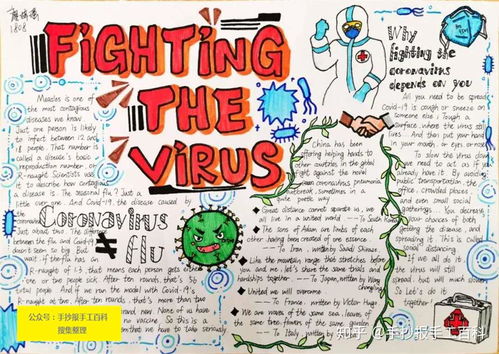 1808
FIGHTING
THE
VIRUS
Why
fighting the
coronavirus
depends on you
Measles is one of
the most contagious
diseases we know.
Just one person is likely
to infect between 12 and
18 people. That number is
called a disease's basic
reproductive number, or
R-naught. Scientists use
it to describe how contagious
a disease is. The seasonal flu? Just a
little over one. And Covid-19, the disease caused by
the
Coronavirus
≠ flu
Just about two. The difference
between the flu and Covid-19
doesn't seem to be big. But
wait. If the flu has an
R-naught of 1.3, that means each person gets
one or two people sick. After ten rounds, that's 56
total people. And if we run the model with Covid-19's
R-naught at two. After ten rounds, that's more than two
now. None of us have
no vaccine. So this is a
that we have to take seriously
China has been
offering helping hands to
other countries in the global
fight against the novel
coronavirus pneumonia
outbreak, sometimes in
quite poetic way
Great distance cannot separate us, we
all live in a united world. — To South Korea
The sons of Adam are limbs of each
other having been created of one essence
— To Iran, written by Saadi Shirazi
Like the mountain range that stretches before
you and me, let's share the same trials and
hardships together — To Japan, written by Wang
Changling
United we will overcome
— To France, written by Victor Hugo
We are waves of the same sea, leaves of
the same tree, flowers of the same garden
— To Italy, written by
All you need to be spread
Covid-19 is cough or sneeze on
someone else. Touch a
surface where the virus still
lives. And then put your hand
in your mouth, or eyes or nose
To slow the virus down,
we need to act as if
already have it. By avoiding
public transportation, the
office, crowded places
and even small social
gatherings. You decrease
your chances of both
getting the disease, and
spreading it. This is called
social distancing.
If we all do it
the virus will still
spread, but much slower
So let's do it
together
公众号：手抄报手工百科
搜集整理
知乎 @手抄报手工百科